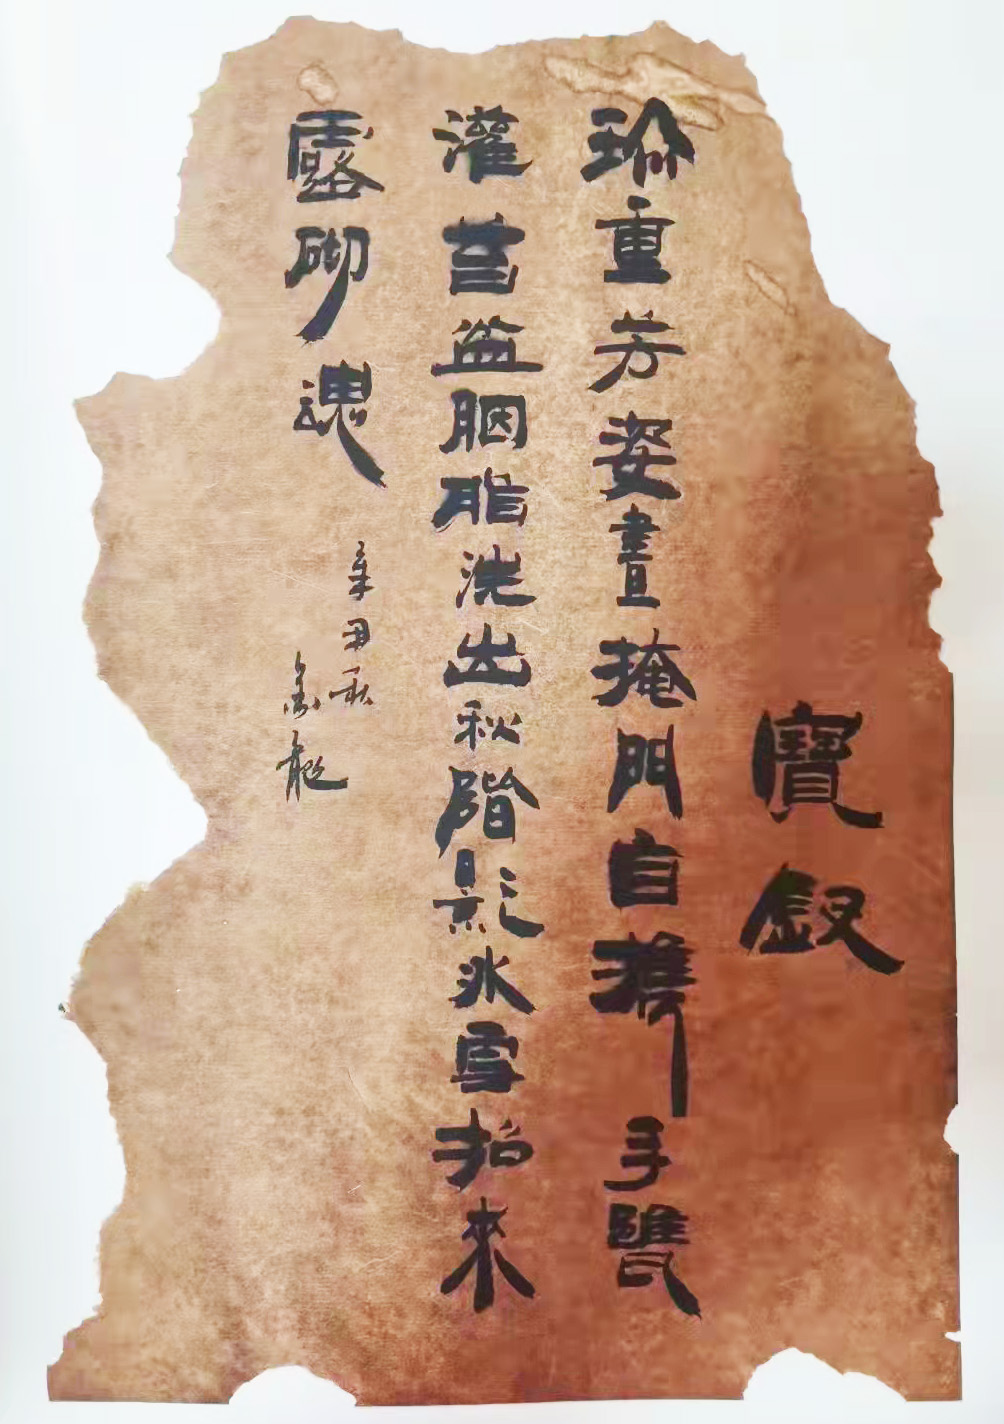 寶釵
珍重芳姿晝掩門自攜手甕
灌苔盆胭脂洗出秋階影冰雪招來
露砌魂
辛丑秋